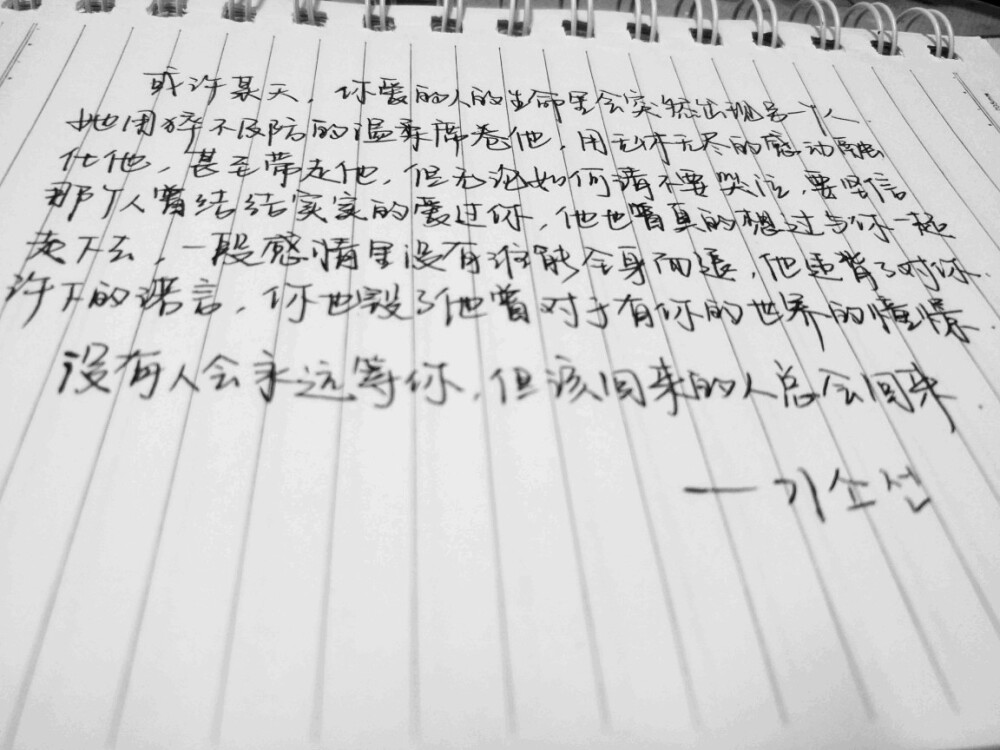 或许某天，你爱的人的生命里会突然出现另一个人
她用猝不及防的温柔席卷他，用无休无尽的感动融
化他，甚至带走他，但无论如何请不要哭泣，要坚信
那个人曾结结实实的爱过你，他也曾真的想过与你一起
走下去，一段感情里没有谁能全身而退，他违背了对你
许下的诺言，你也毁了他曾对于有你的世界的憧憬
没有人会永远等你，但该回来的人总会回来
——기소선